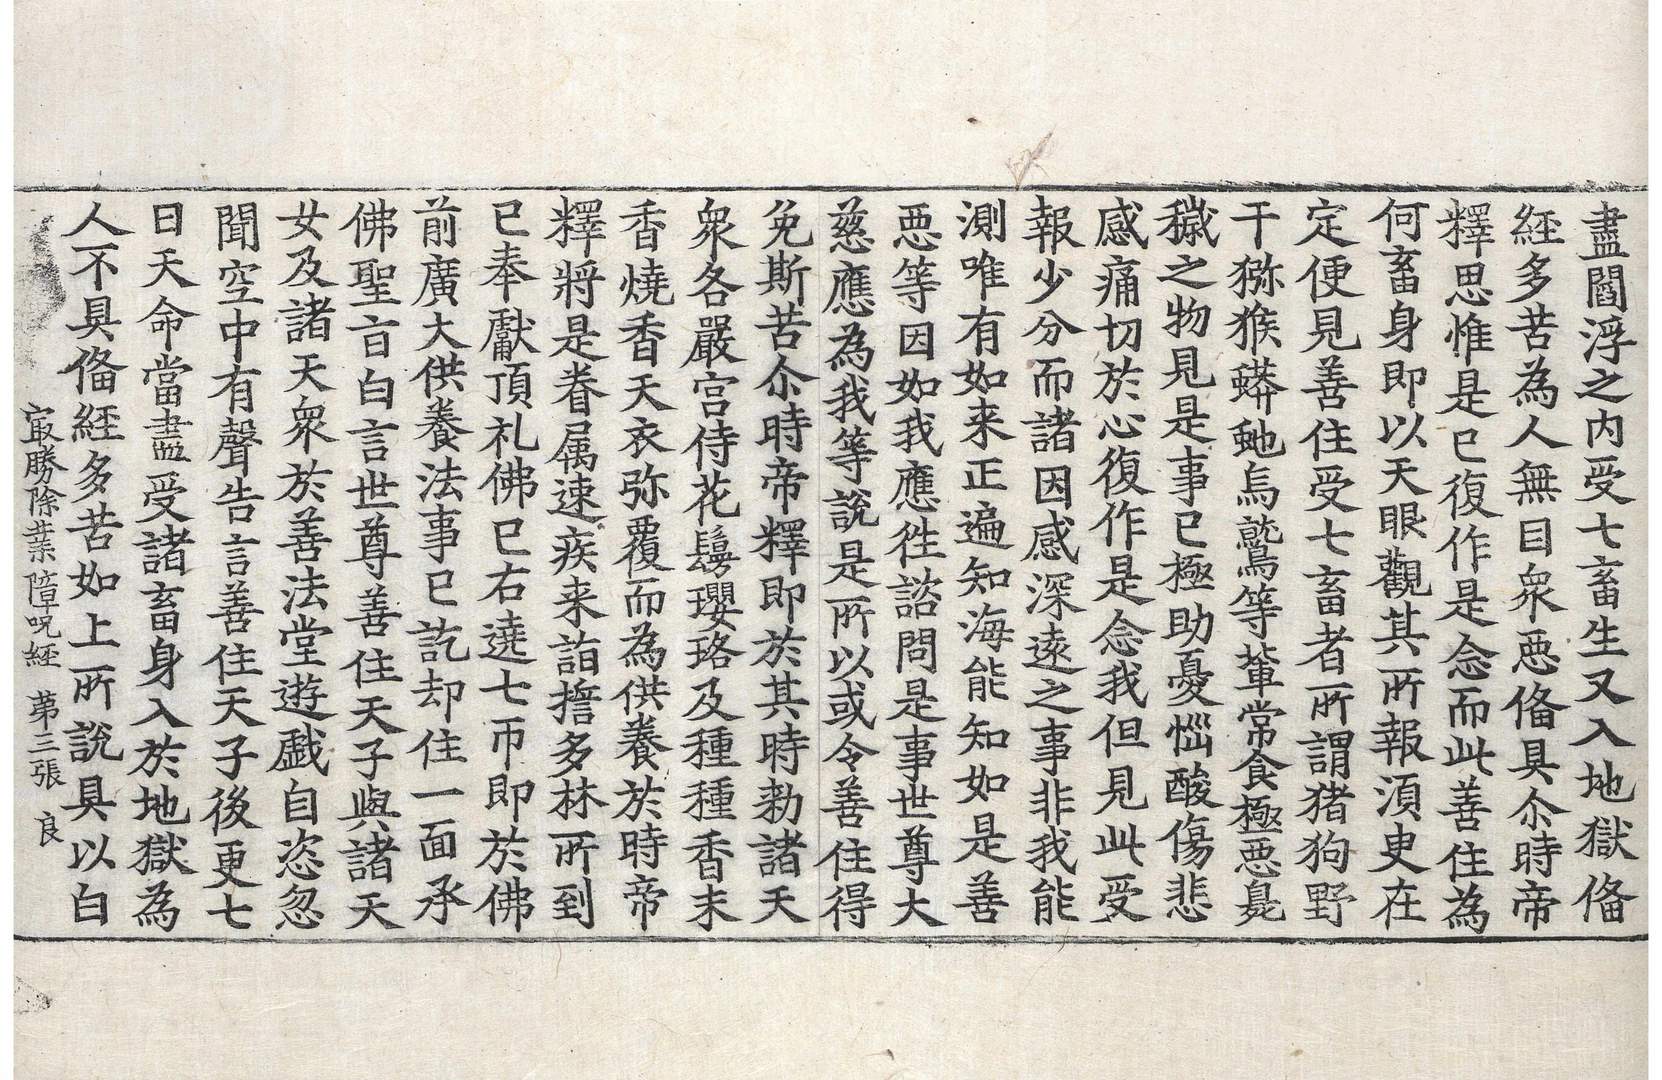 盡閻浮之内受七畜生又入地獄俻
經多苦為人無目衆惡俻具尒時帝
釋思惟是已復作是念而此善住為
何畜身即以天眼觀其所報湏臾在
定便見善住受七畜者所謂猪狗野
干猕猴蟒虵烏鷲等輩常食極惡臰
穢之物見是事已極助憂惱酸傷悲
感痛切於心復作是念我但見此受
報少分而諸因感深遠之事非我能
測唯有如来正遍知海能知如是善
惡等因如我應徃諮問是事世尊大
慈應為我等說是所以或令善住得
免斯苦尒時帝釋即於其時勑諸天
衆各嚴宫侍花鬘瓔珞及種種香末
香燒香天衣弥覆而為供養於時帝
釋將是眷属速疾来詣擔多林所到
已奉獻頂礼佛已右遶七帀即於佛
前廣大供養法事已訖却住一面承
佛聖㫖白言世尊善住天子與諸天
女及諸天衆於善法堂遊戯自恣忽
聞空中有聲告言善住天子後更七
日天命當盡受諸畜身入於地獄為
人不具俻經多苦如上所說具以白
㝡勝除業障呪經　苐三張　良